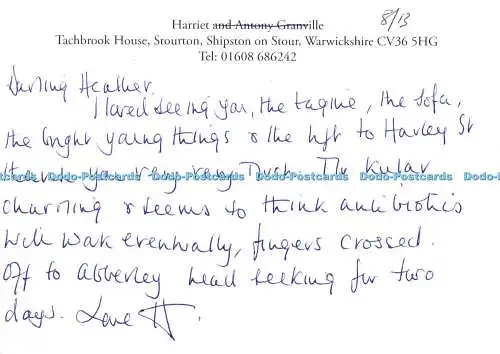 8/13
Harriet and Antony Granville
Tachbrook House, Stourton, Shipston on Stour, Warwickshire CV36 5HG
Tel: 01608 686242
Darling Heather,
I loved seeing you, the tagine, the sofa,
the bright young things & the lift to Harley St
Thank you very very much. The Kular
Dodo-Postcards Dodo-Postcards Dodo-Postcards Dodo-Postcards Dodo-Postcards
charming & seems to think antibiotics
will work eventually, fingers crossed.
Off to Abberley head seeking for two
days. Love H.